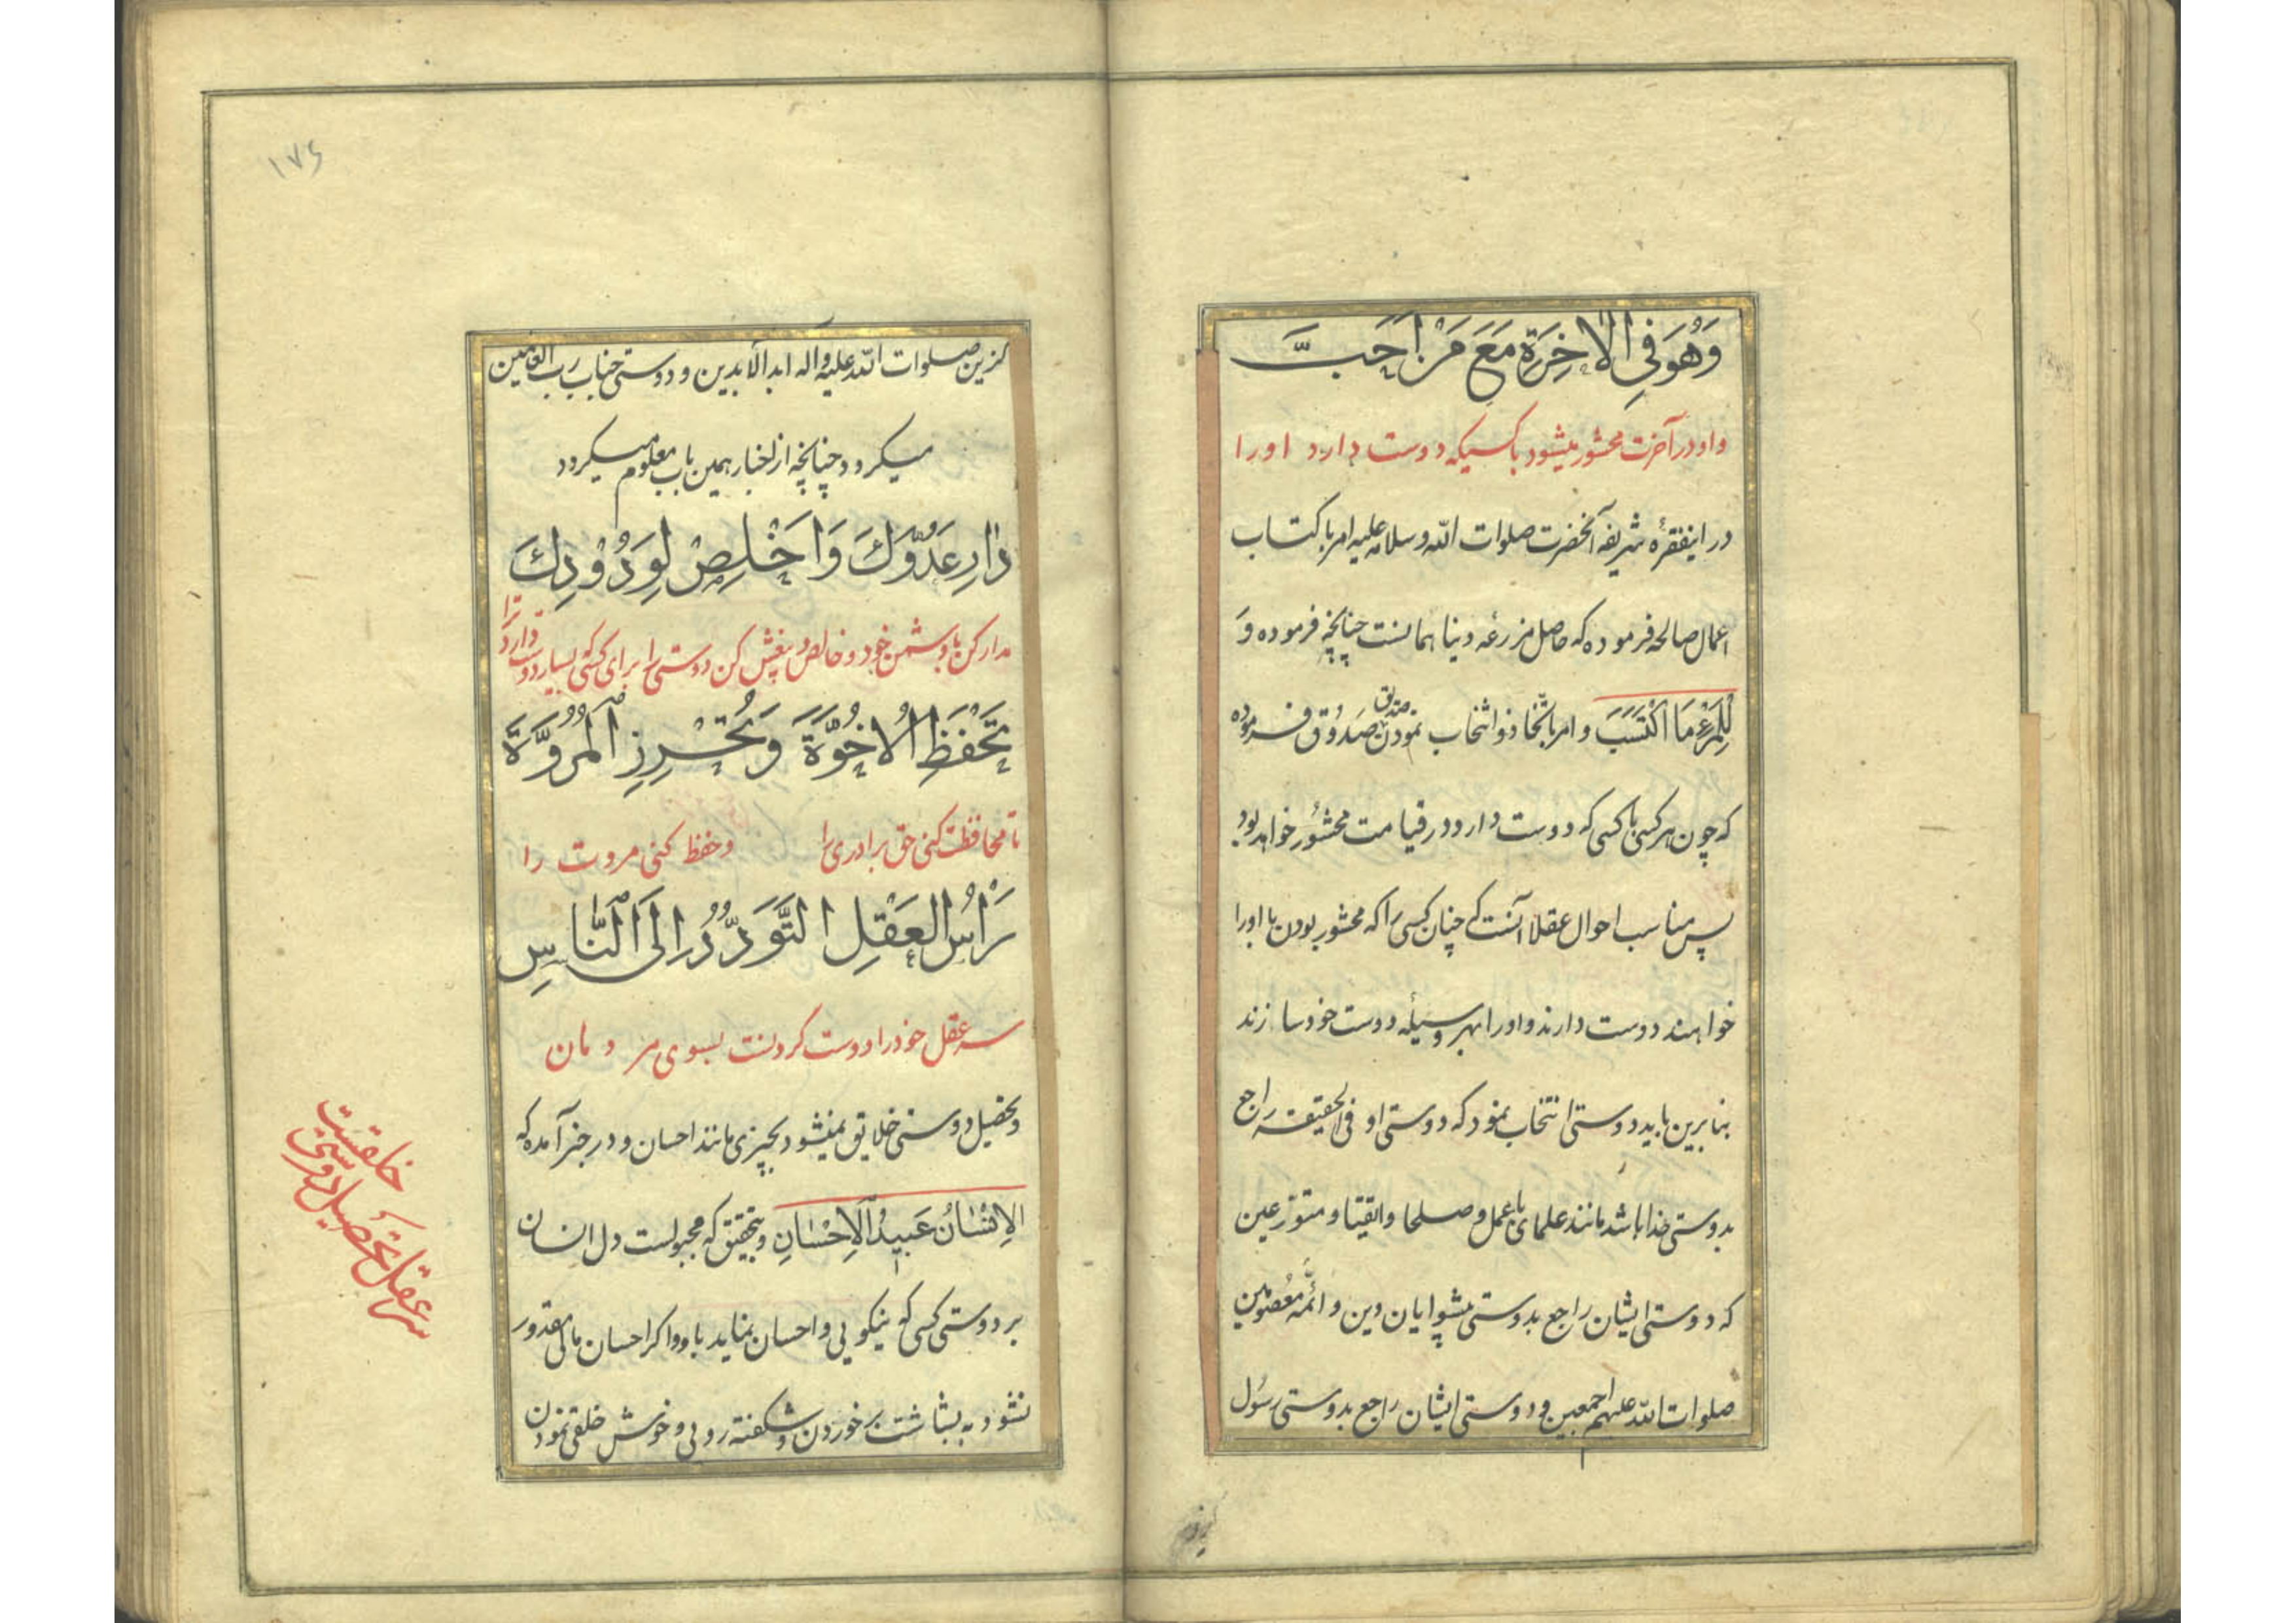 وَهُوَ فِي الْاٰخِرَةِ مَعَ مَنْ اَحَبَّ
و او در آخرت محشور میشود با کسیکه دوست دارد اورا
در اینفقرهٔ شریفه آنحضرت صلوات اللّه وسلامه علیه امر باکتساب
اعمال صالحه فرموده که حاصل مزرعهٔ دنیا همانست چنانچه فرموده وَ
لِلْمَرْءِ مَا اكْتَسَبَ و امر باتّخاذ و انتخاب نمودن صدیق صَدُوق فرموده
که چون هر کسی با کسی که دوست دارد در قیامت محشُور خواهد بود
پس مناسب احوال عقلا آنست که چنان کسی را که محشور بودن با اورا
خواهند دوست دارند و اورا بهر وسیله دوست خود سازند
بنابرین باید دوستی انتخاب نمود که دوستی او فی الحقیقه راجع
بدوستی خدا باشد مانند علمای با عمل و صلحا و اتقیا و متورّعین
که دوستی ایشان راجع بدوستی پیشوایان دین و ائمّه معصُومین
صلوات اللّه علیهم اجمعین و دوستی ایشان راجع بدوستی رسُول
گزین
۱۷۶
گزین صلوات اللّه علیه و اله ابد الآبدین و دوستی جناب رب العالمین
میکردد چنانچه از اخبار همین باب معلوم میکردد
دَارِ عَدُوَّكَ وَاَخْلِصْ لِوَدُوْدِكَ
مدارا کن با دشمن خود و خالص و بیغش کن دوستی را برای کسی که بسیار دوست دارد ترا
تَحْفَظِ الْاُخُوَّةَ وَتُحْرِزِ الْمُرُوَّةَ
تا محافظت کنی حق برادری را و حفظ کنی مروت را
رَاْسُ الْعَقْلِ التَّوَدُّدُ اِلَى النَّاسِ
سر عقل خود را دوست کردنست بسوی مردمان
و تحصیل دوستی خلایق نمیشود بچیزی مانند احسان و در خبر آمده که
الاِنْسٰانُ عَبيدُ الاِحْسٰانِ و بتحقیق که مجبولست دل انسان
بر دوستی کسی که نیکویی و احسان نماید باو و اکر احسان مالی مقدور
نشود به بشاشت برخوردن و شکفته رویی و خوش خلقی نمودن
سر عقل تحصیل دوستی
خلقست